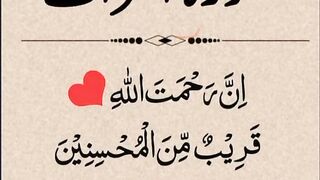 اِنَّ رَحْمَتَ اللّٰهِ
قَرِيْبٌ مِّنَ الْمُحْسِنِيْنَ